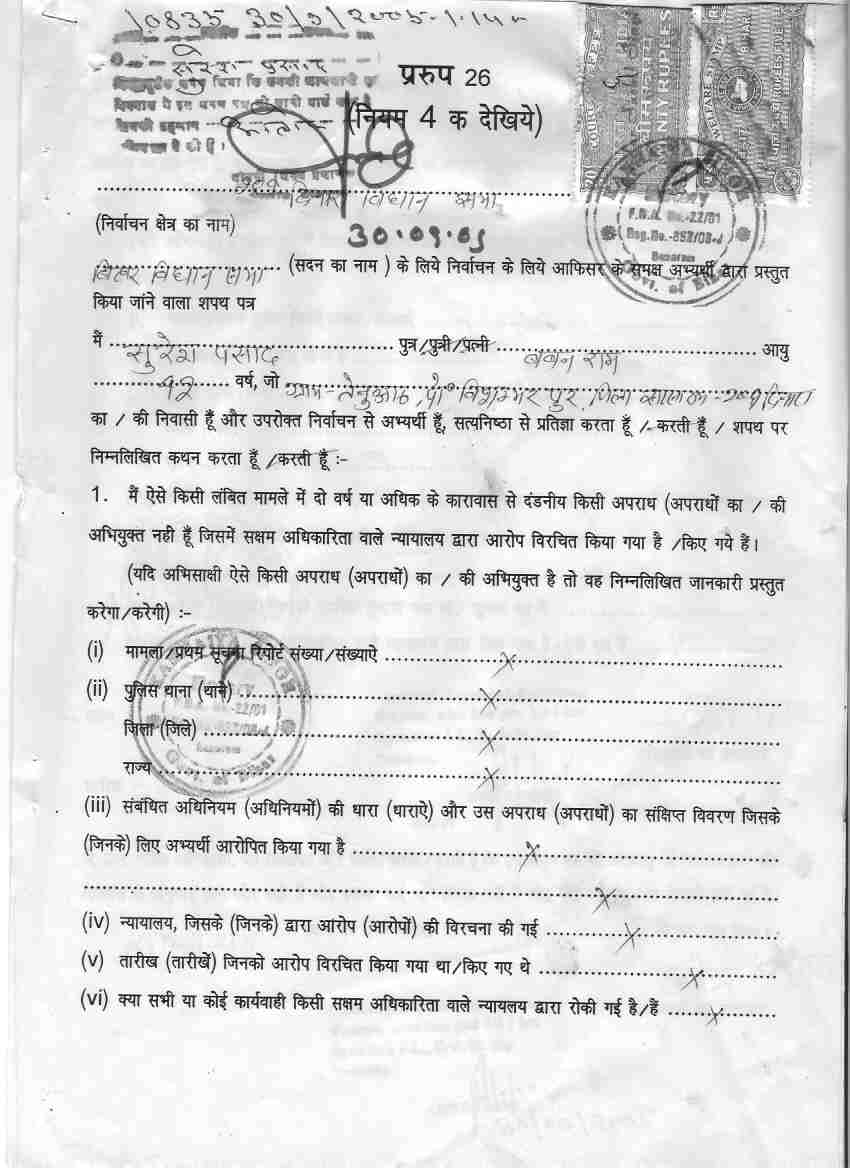 10835 30/9/2005
सुरेश प्रसाद
प्ररुप 26
(नियम 4 क देखिये)
विधान सभा
(निर्वाचन क्षेत्र का नाम)
30.09.05
बिहार विधान सभा (सदन का नाम ) के लिये निर्वाचन के लिये आफिसर के समक्ष अभ्यर्थी द्वारा प्रस्तुत
किया जांने वाला शपथ पत्र
मैं सुरेश पसाद पुत्र/पुत्री/पत्नी बबन राम आयु
42 वर्ष, जो ग्राम-तेनुआठ, पो० जिला
का / की निवासी हूँ और उपरोक्त निर्वाचन से अभ्यर्थी हूँ, सत्यनिष्ठा से प्रतिज्ञा करता हूँ / करती हूँ / शपथ पर
निम्नलिखित कथन करता हूँ /करती हूँ :-
1. मैं ऐसे किसी लंबित मामले में दो वर्ष या अधिक के कारावास से दंडनीय किसी अपराध (अपराधों का / की
अभियुक्त नही हूँ जिसमें सक्षम अधिकारिता वाले न्यायालय द्वारा आरोप विरचित किया गया है /किए गये हैं।
(यदि अभिसाक्षी ऐसे किसी अपराध (अपराधों) का / की अभियुक्त है तो वह निम्नलिखित जानकारी प्रस्तुत
करेगा/करेगी) :-
(i) मामला/प्रथम सूचना रिपोर्ट संख्या/संख्याऐ X
(ii) पुलिस थाना (थाने) X
जिला (जिले) X
राज्य X
(iii) संबंधित अधिनियम (अधिनियमों) की धारा (धाराऐ) और उस अपराध (अपराधों) का संक्षिप्त विवरण जिसके
(जिनके) लिए अभ्यर्थी आरोपित किया गया है X
X
(iv) न्यायालय, जिसके (जिनके) द्वारा आंरोप (आरोपों) की विरचना की गई X
(v) तारीख (तारीखें) जिनको आरोप विरचित किया गया था/किए गए थे X
(vi) क्या सभी या कोई कार्यवाही किसी सक्षम अधिकारिता वाले न्यायलय द्वारा रोकी गई है/हैं X